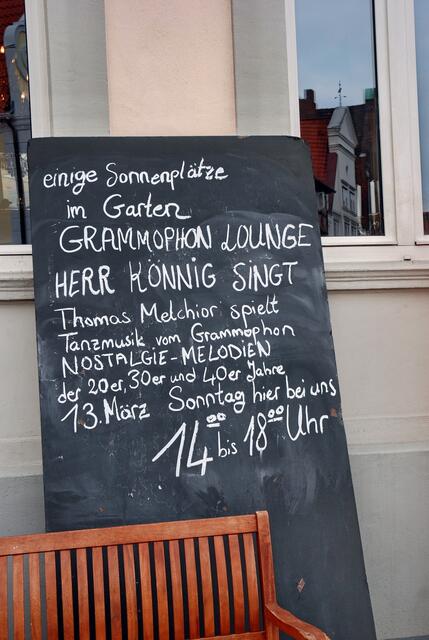 einige Sonnenplätze
im Garten
GRAMMOPHON LOUNGE
HERR KÖNNIG SINGT
Thomas Melchior spielt
Tanzmusik vom Grammophon
NOSTALGIE-MELODIEN
der 20er, 30er und 40er Jahre
13. März Sonntag hier bei uns
14⁰⁰ bis 18⁰⁰ Uhr